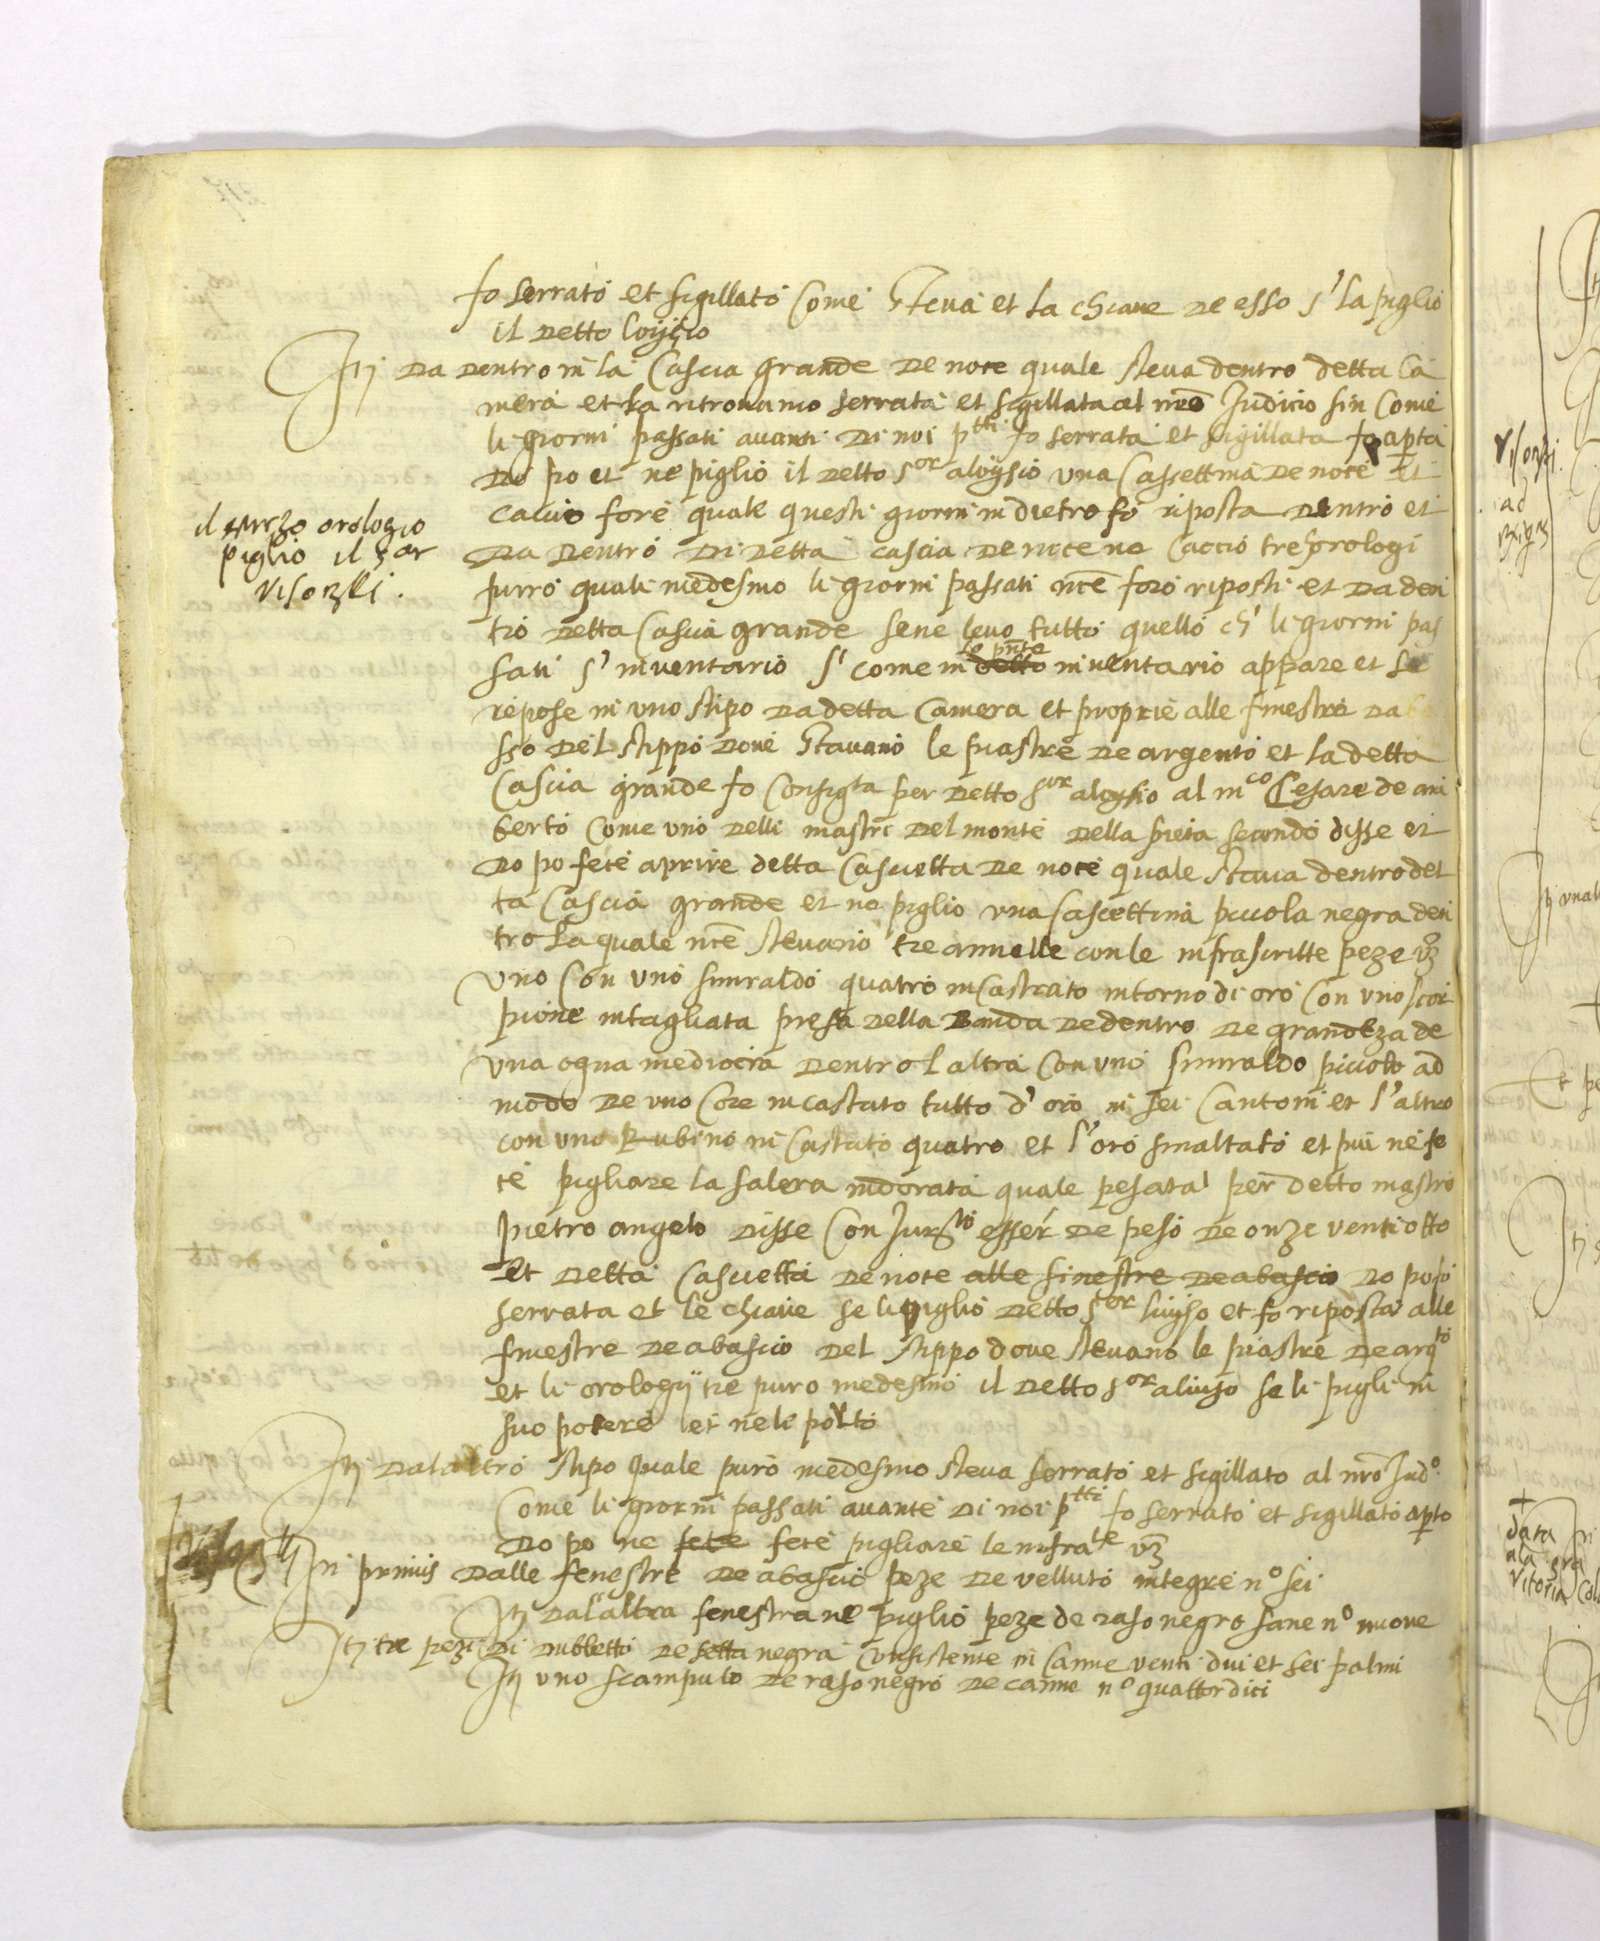 fo serrato et sigillato come steva et la chiave de esso s' la piglio
il detto loygio
Itj da dentro in la cascia grande de noce quale steva dentro detta ca
mera et la ritrovamo serrata et sigillata al nro Judicio sin come
li giorni passati avanti di noi ptti fo serrata et sigillata fo apta
do po et ne piglio il detto sor aloysio una cassettina de noce et
caccio fore quale questi giorni in dietro fo riposta dentro et
da dentro di detta cascia de noce ne caccio tre orologi
purro quali medesmo li giorni passati nce foro riposti et da den
tro detta cascia grande sene levo tutto quello ch' li giorni pas
sati s' inventario s' come in detto lo pnte inventario appare et si
repose in uno stipo da detta camera et proprie alle finestre da ba
sso del stippo dove stavano le piastre de argento et la detta
cascia grande fo consigta per detto sor aloysio al mco Cesare de ani
berto come uno delli mastri del monte della pieta secondo disse et
do po fece aprire detta cascietta de noce quale stava dentro det
ta cascia grande et ne piglio una cascettina piccola negra den
tro la quale nce stevano tre annelle con le infrascritte peze vz
uno con uno smiraldo quatro incastrato intorno di oro con uno scor
pione intagliata presa della banda de dentro de grandeza de
una ogna mediocra dentro l altra con uno smiraldo piccolo ad
modo de uno core incastato tutto d' oro in sei cantoni et l'altro
con uno Rubino in castato quatro et l'oro smaltato et piu ne fe
ce pigliare la salera indorata quale pesata per detto mastro
pietro angelo disse con Jurto esser de peso de onze venti otto
Et detta cascietta de noce alle finestre de abascio do po fo
serrata et le chiave se li piglio detto sor luygio et fo riposta alle
finestre de abascio del stippo dove stevano le piastre de argto
et li orologij tre puro medesmo il detto sor aluigio se li pigli in
suo potere et neli porto
Itj dal altro stipo quale puro medesmo steva serrato et sigillato al nro Judo
come li giorni passati avante di noi ptti fo serrato et sigillato apto
do po ne fece fece pigliare le infrate vz
In primis dalle fenestre de abascio peze de velluto integre no sei
Itj dal'altra fenestra ne piglio peze de raso negro sane no nuove
Itj tre pezi di dubletto de setta negra consistente in canne venti dui et sei palmi
Itj uno scampulo de raso negro de canne no quattordici
il terzo orologio
piglio il sor